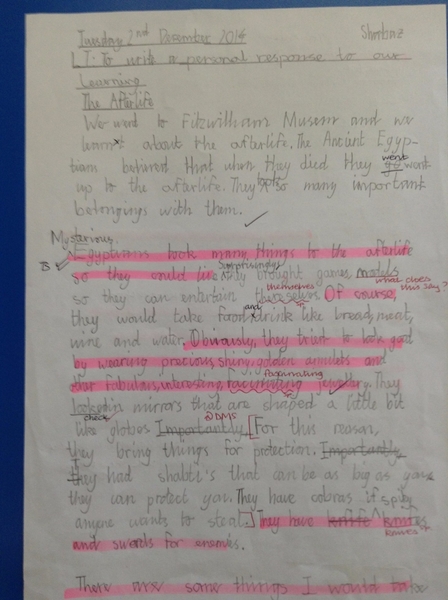 Tuesday 2nd December 2014 Shorbaz
LI: To write a personal response to our
Learning
The Afterlife
We went to Fitzwilliam Museum and we
learnt about the afterlife. The Ancient Egyp-
tians believed that when they died they went
up to the afterlife. They took so many important
belongings with them.
Mysterious
Egyptians took many things to the afterlife
so they could live. Surprisingly they brought games,
what does this say?
so they can entertain themselves themselves. Of course,
they would take food and drink like bread, meat,
wine and water. Obviously, they tried to look good
by wearing precious, shiny, golden amulets and
other fabulous, interesting, fascinating jewellery. They
looked in mirrors that are shaped a little bit
check
like globes Importantly [For this reason,
they bring things for protection. Importantly
they had shabti's that can be as big as you
they can protect you. They have cobras if
anyone wants to steal.] They have knife knives
and swords for enemies.
There are some things I would take